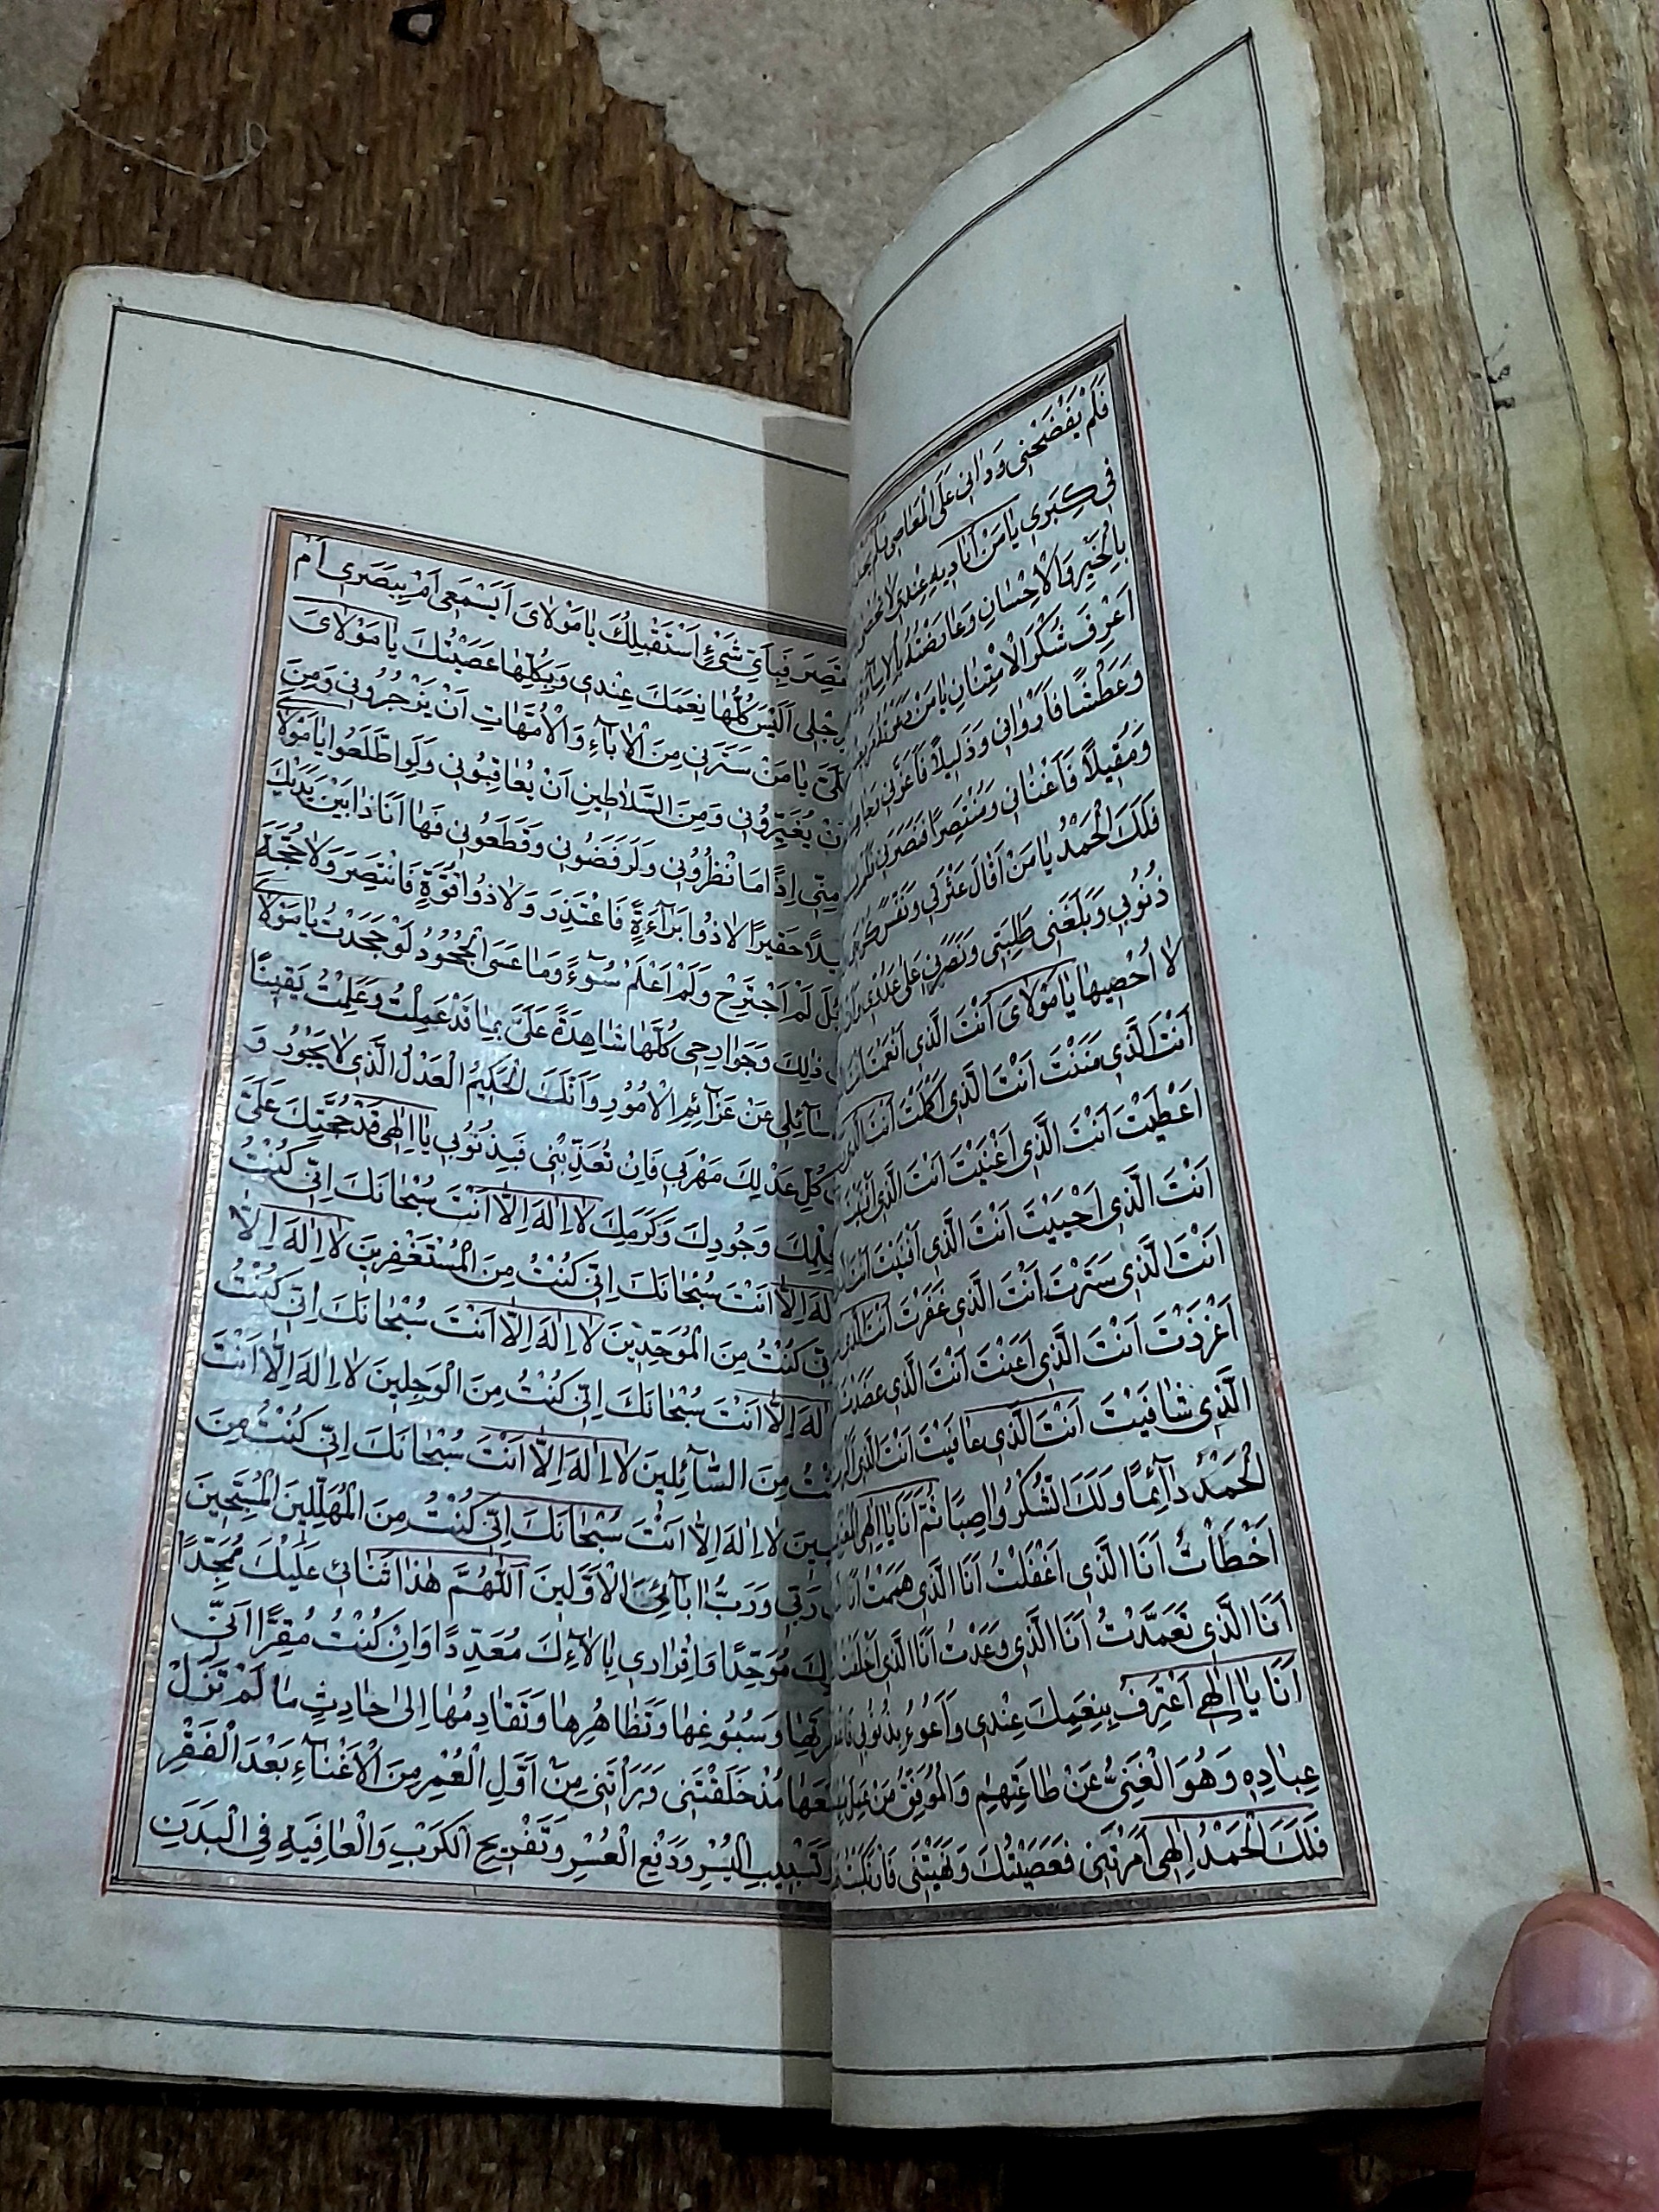 فَلَمْ يَفْضَحْنِي وَرَانِي عَلَى الْمَعَاصِي فَلَمْ
فِي كِبَرِي يَا مَنْ اَيَادِيهِ عِنْدِي لَا
بِالْخَيْرِ وَالْاِحْسَانِ وَعَارَضْتُهُ بِالْاِسَاءَةِ
اَعْرِفَ شُكْرَ الْاِمْتِنَانِ يَا مَنْ
وَعَطْشَانًا فَاَرْوَانِي وَذَلِيلًا فَاَعَزَّنِي
وَمُقِلًّا فَاَغْنَانِي وَمُنْتَصِرًا فَنَصَرَنِي
فَلَكَ الْحَمْدُ يَا مَنْ اَقَالَ عَثْرَتِي وَنَفَّسَ
ذُنُوبِي وَبَلَّغَنِي طَلِبَتِي وَنَصَرَنِي عَلَى عَدُوِّي
لَا اُحْصِيهَا يَا مَوْلَايَ اَنْتَ الَّذِي اَنْعَمْتَ
اَنْتَ الَّذِي مَنَنْتَ اَنْتَ الَّذِي اَكْمَلْتَ اَنْتَ الَّذِي
اَعْطَيْتَ اَنْتَ الَّذِي اَغْنَيْتَ اَنْتَ الَّذِي
اَنْتَ الَّذِي اَحْيَيْتَ اَنْتَ الَّذِي اَفْنَيْتَ
اَنْتَ الَّذِي سَتَرْتَ اَنْتَ الَّذِي غَفَرْتَ اَنْتَ الَّذِي
اَعْزَزْتَ اَنْتَ الَّذِي اَعَنْتَ اَنْتَ الَّذِي عَضَدْتَ
الَّذِي شَافَيْتَ اَنْتَ الَّذِي عَافَيْتَ اَنْتَ الَّذِي
الْحَمْدُ دَآئِمًا وَلَكَ الشُّكْرُ وَاصِبًا ثُمَّ اَنَا يَا اِلٰهِي
اَخْطَأْتُ اَنَا الَّذِي اَغْفَلْتُ اَنَا الَّذِي هَمَمْتُ
اَنَا الَّذِي تَعَمَّدْتُ اَنَا الَّذِي وَعَدْتُ اَنَا الَّذِي اَخْلَفْتُ
اَنَا يَا اِلٰهِي اَعْتَرِفُ بِنِعَمِكَ عِنْدِي وَاَبُوءُ بِذُنُوبِي
عِبَادِهِ وَهُوَ الْغَنِيُّ عَنْ طَاعَتِهِمْ وَالْمُوَفِّقُ مَنْ عَمِلَ
فَلَكَ الْحَمْدُ اِلٰهِي اَمَرْتَنِي فَعَصَيْتُكَ وَنَهَيْتَنِي فَارْتَكَبْتُ
فَبِاَيِّ شَيْءٍ اَسْتَقْبِلُكَ يَا مَوْلَايَ اَبِسَمْعِي اَمْ بِبَصَرِي اَمْ
بِرِجْلِي اَلَيْسَ كُلُّهَا نِعَمَكَ عِنْدِي وَبِكُلِّهَا عَصَيْتُكَ يَا مَوْلَايَ
عَلَيَّ يَا مَنْ سَتَرَنِي مِنَ الْاٰبَآءِ وَالْاُمَّهَاتِ اَنْ يَزْجُرُونِي وَمِنَ
اَنْ يُعَيِّرُونِي وَمِنَ السَّلَاطِينِ اَنْ يُعَاقِبُونِي وَلَوِ اطَّلَعُوا يَا مَوْلَايَ
مِنِّي اِذًا مَا نْظَرُونِي وَلَرَفَضُونِي وَقَطَعُونِي فَهَا اَنَا ذَا بَيْنَ يَدَيْكَ
حَقِيرًا لَا ذُوا بَرَآءَةٍ فَاَعْتَذِرَ وَلَا ذُوا قُوَّةٍ فَاَنْتَصِرَ وَلَا حُجَّةَ
لَمْ اَجْتَرِحْ وَلَمْ اَعْلَمْ سُوٓءً وَمَا عَسَى الْجُحُودُ لَوْ جَحَدْتُ يَا مَوْلَايَ
ذٰلِكَ وَجَوَارِحِي كُلُّهَا شَاهِدَةٌ عَلَيَّ بِمَا قَدْ عَمِلْتُ وَعَلِمْتُ يَقِينًا
سَآئِلِي عَنْ عَزَآئِمِ الْاُمُورِ وَاَنَّكَ الْحَكِيمُ الْعَدْلُ الَّذِي لَا يَجُورُ وَ
كُلِّ عَدْلِكَ مَهْرَبِي فَاِنْ تُعَذِّبْنِي فَبِذُنُوبِي يَا اِلٰهِي بَعْدَ حُجَّتِكَ عَلَيَّ
وَجُودِكَ وَكَرَمِكَ لَا اِلٰهَ اِلَّا اَنْتَ سُبْحَانَكَ اِنِّي كُنْتُ
اِلٰهَ اِلَّا اَنْتَ سُبْحَانَكَ اِنِّي كُنْتُ مِنَ الْمُسْتَغْفِرِينَ لَا اِلٰهَ اِلَّا
اِنِّي كُنْتُ مِنَ الْمُوَحِّدِينَ لَا اِلٰهَ اِلَّا اَنْتَ سُبْحَانَكَ اِنِّي كُنْتُ
اِلٰهَ اِلَّا اَنْتَ سُبْحَانَكَ اِنِّي كُنْتُ مِنَ الْوَجِلِينَ لَا اِلٰهَ اِلَّا اَنْتَ
كُنْتُ مِنَ السَّآئِلِينَ لَا اِلٰهَ اِلَّا اَنْتَ سُبْحَانَكَ اِنِّي كُنْتُ مِنَ
لَا اِلٰهَ اِلَّا اَنْتَ سُبْحَانَكَ اِنِّي كُنْتُ مِنَ الْمُهَلِّلِينَ الْمُسَبِّحِينَ
رَبِّي وَرَبُّ اٰبَآئِيَ الْاَوَّلِينَ اَللّٰهُمَّ هٰذَا ثَنَائِي عَلَيْكَ مُمَجِّدًا
مُوَحِّدًا وَاِقْرَارِي بِالْاٰئِكَ مُعَدِّدًا وَاِنْ كُنْتُ مُقِرًّا اَنِّي
وَسُبُوغِهَا وَتَظَاهُرِهَا وَتَقَادُمِهَا اِلٰى حَادِثٍ مَا لَمْ تَزَلْ
مُذْ خَلَقْتَنِي وَبَرَأْتَنِي مِنْ اَوَّلِ الْعُمْرِ مِنَ الْاِغْنَآءِ بَعْدَ الْفَقْرِ
وَتَسْبِيبِ الْيُسْرِ وَدَفْعِ الْعُسْرِ وَتَفْرِيجِ الْكَرْبِ وَالْعَافِيَةِ فِي الْبَدَنِ